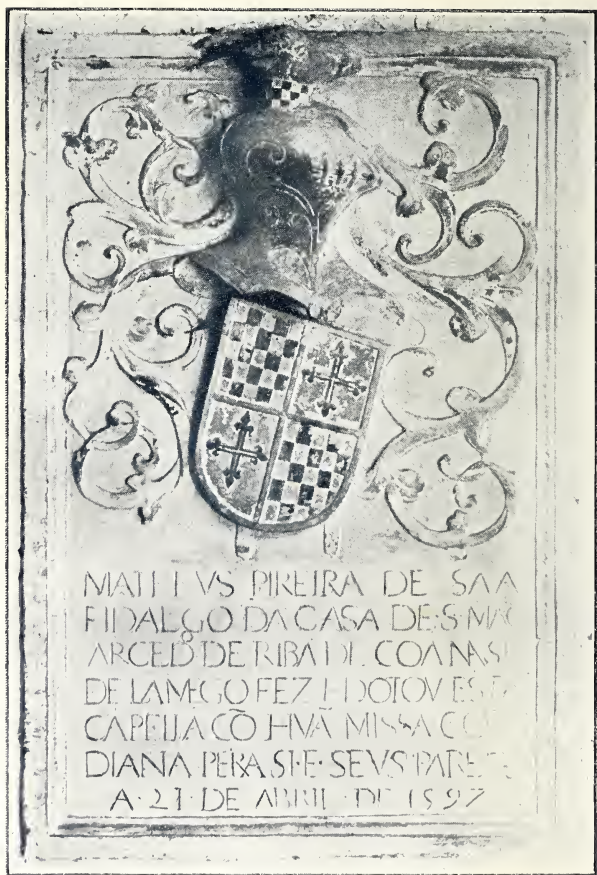 MATHEVS PIREIRA DE SAA
FIDALGO DA CASA DE S MAG
ARCEDº DE RIBA DE COA NA SE
DE LAMEGO FEZ E DOTOV ESTA
CAPELLA CÕ HVÃ MISSA
DIANA PERA SI·E·SEVS
A·21·DE ABRIL·DE 1597